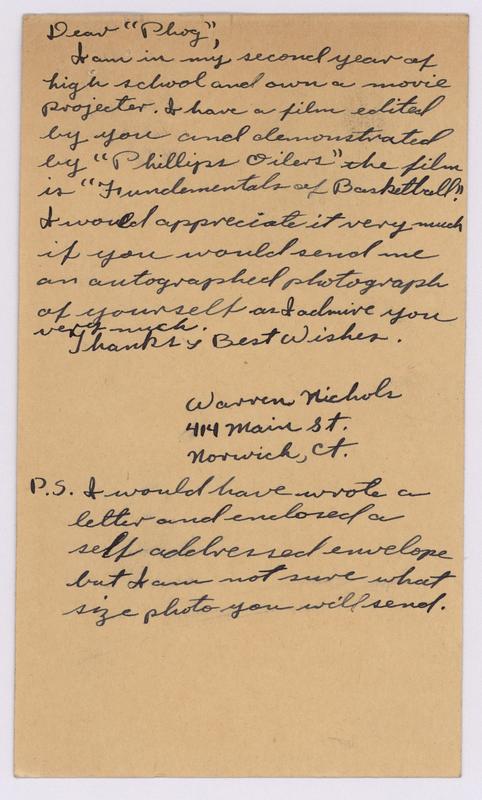 Dear "Phog",
I am in my second year of
high school and own a movie
projecter. I have a film edited
by you and demonstrated
by "Phillips Oilers" the film
is "Fundementals of Basketball".
I would appreciate it very much
if you would send me
an autographed photograph
of yourself as I admire you
very much.
Thanks & Best Wishes.
Warren Nichols
414 Main St.
Norwich, Ct.
P.S. I would have wrote a
letter and enclosed a
self addressed envelope
but I am not sure what
size photo you will send.